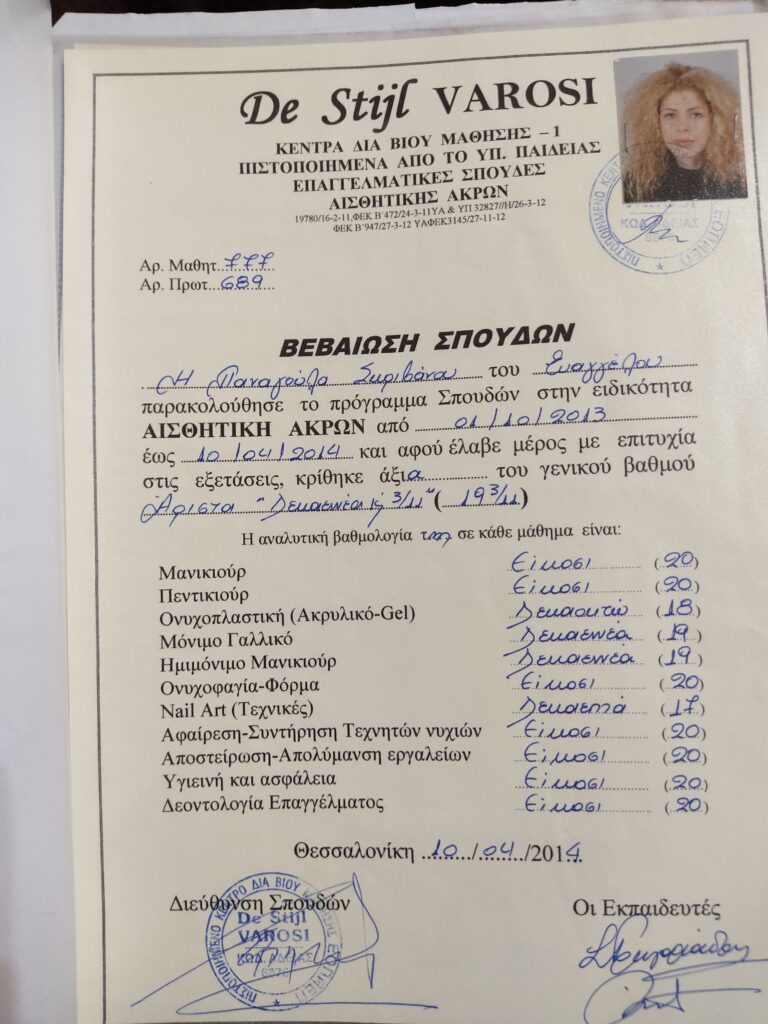 De Stijl VAROSI
ΚΕΝΤΡΑ ΔΙΑ ΒΙΟΥ ΜΑΘΗΣΗΣ – 1
ΠΙΣΤΟΠΟΙΗΜΕΝΑ ΑΠΟ ΤΟ ΥΠ. ΠΑΙΔΕΙΑΣ
ΕΠΑΓΓΕΛΜΑΤΙΚΕΣ ΣΠΟΥΔΕΣ
ΑΙΣΘΗΤΙΚΗΣ ΑΚΡΩΝ
19780/16-2-11,ΦΕΚ Β΄472/24-3-11ΥΑ & ΥΠ 32827//Η/26-3-12
ΦΕΚ Β΄947/27-3-12 ΥΑΦΕΚ3145/27-11-12
VAROSI
ΚΩΔ. ΑΔΕΙΑΣ
Αρ. Μαθητ. 777
Αρ. Πρωτ. 689
ΒΕΒΑΙΩΣΗ ΣΠΟΥΔΩΝ
Η Παναγούλα Σκριβάνου του Ευαγγέλου
παρακολούθησε το πρόγραμμα Σπουδών στην ειδικότητα
ΑΙΣΘΗΤΙΚΗ ΑΚΡΩΝ από 01/10/2013
έως 10/04/2014 και αφού έλαβε μέρος με επιτυχία
στις εξετάσεις, κρίθηκε άξια του γενικού βαθμού
Άριστα "Δεκαεννέα & 3/11" (19 3/11)
Η αναλυτική βαθμολογία της σε κάθε μάθημα είναι:
Μανικιούρ Είκοσι (20)
Πεντικιούρ Είκοσι (20)
Ονυχοπλαστική (Ακρυλικό-Gel) Δεκαοκτώ (18)
Μόνιμο Γαλλικό Δεκαεννέα (19)
Ημιμόνιμο Μανικιούρ Δεκαεννέα (19)
Ονυχοφαγία-Φόρμα Είκοσι (20)
Nail Art (Τεχνικές) Δεκαεπτά (17)
Αφαίρεση-Συντήρηση Τεχνητών νυχιών Είκοσι (20)
Αποστείρωση-Απολύμανση εργαλείων Είκοσι (20)
Υγιεινή και ασφάλεια Είκοσι (20)
Δεοντολογία Επαγγέλματος Είκοσι (20)
Θεσσαλονίκη 10/04/2014
Διεύθυνση Σπουδών Οι Εκπαιδευτές
ΠΙΣΤΟΠΟΙΗΜΕΝΟ ΚΕΝΤΡΟ ΔΙΑ ΒΙΟΥ ΜΑΘΗΣΗΣ
De Stijl
VAROSI
ΚΩΔ. ΑΔΕΙΑΣ